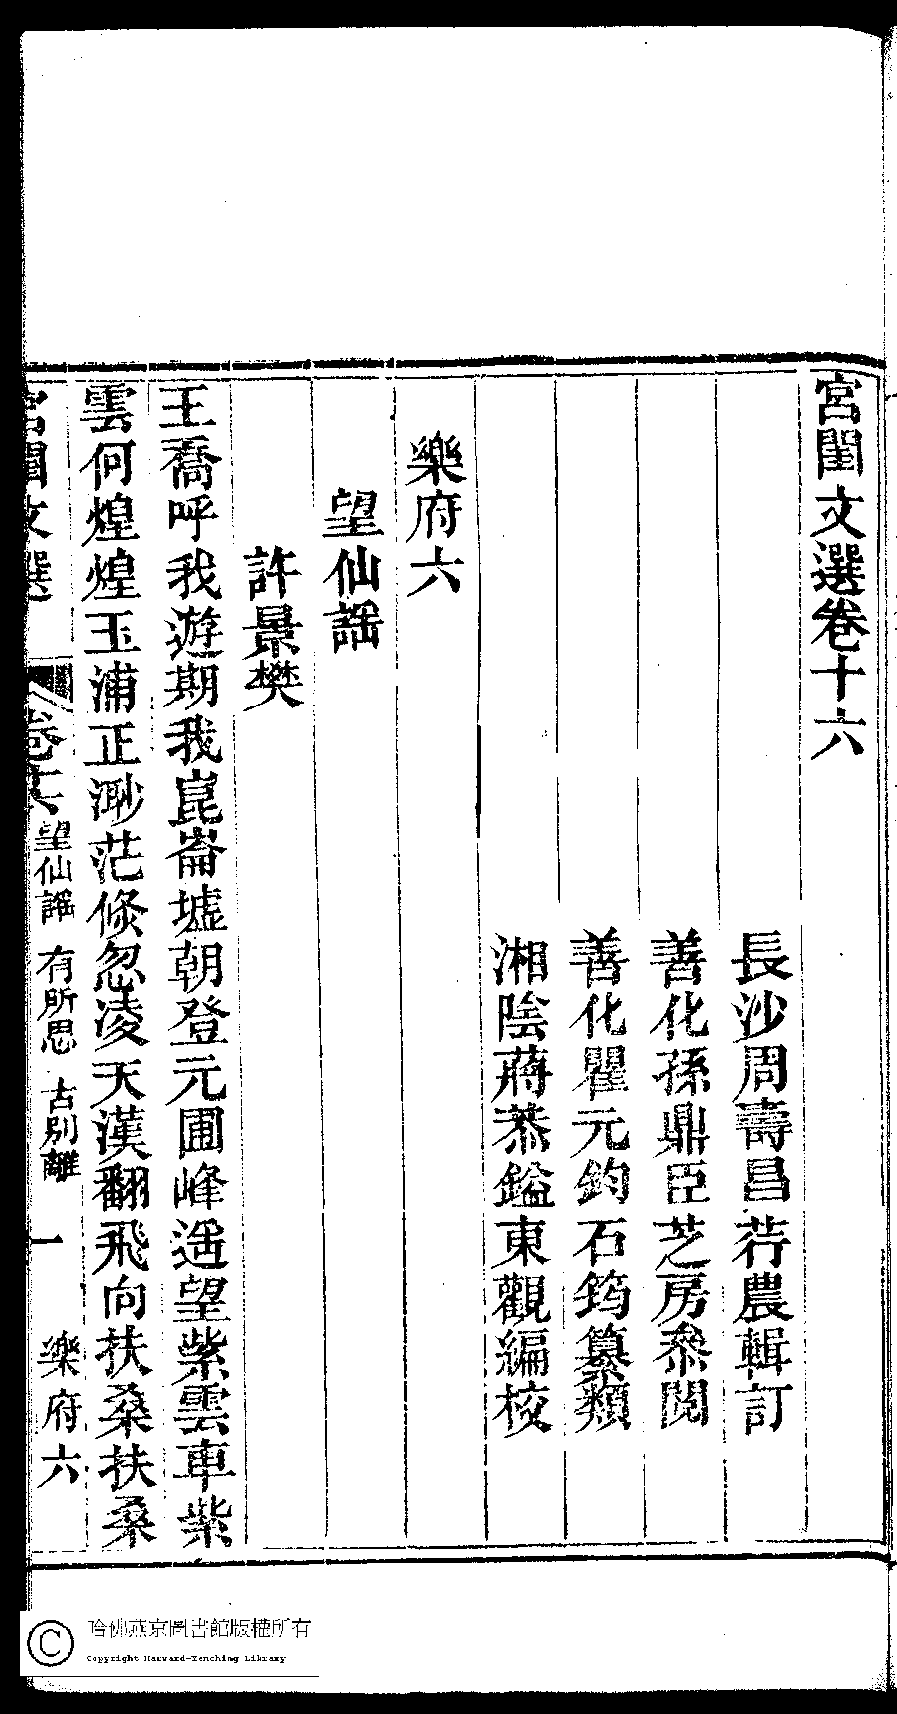 宮閨文選卷十六
長沙周壽昌荇農輯訂
善化孫鼎臣芝房叅閱
善化瞿元鈞石筠纂類
湘陰蔣恭鎰東觀編校
樂府六
望仙謡
許景樊
王喬呼我遊期我崑崙墟朝登元圃峰遥望紫雲車紫
雲何煌煌玉浦正渺茫倐忽凌天漢翻飛向扶桑扶桑
宮閨文選 卷十六 望仙謡 有所思 古別離 一 樂府六
哈佛燕京圖書館版權所有
Copyright Harvard-Yenching Library